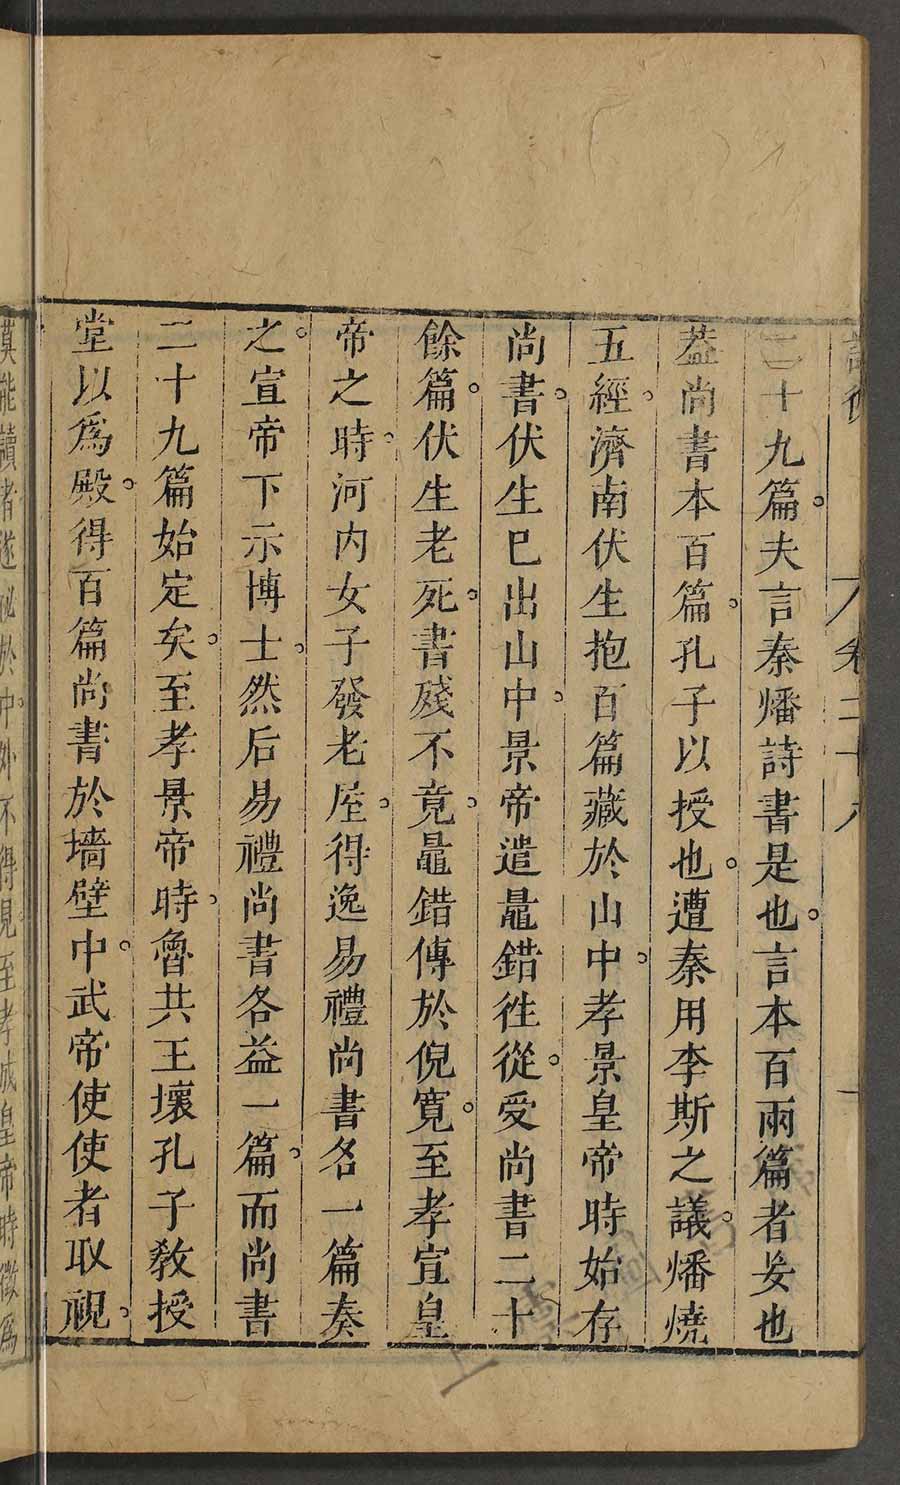 卷二十八
二十九篇。夫言秦燔詩書是也。言本百兩篇者妄也
葢尚書本百篇。孔子以授也。遭秦用李斯之議。燔燒
五經。濟南伏生抱百篇藏於山中。孝景皇帝時始存
尚書。伏生已出山中。景帝遣鼂錯徃從。受尚書二十
餘篇。伏生老死。書殘不竟。鼂錯傳於倪寬。至孝宣皇
帝之時。河内女子發老屋。得逸易禮尚書各一篇奏
之。宣帝下示博士。然后易禮尚書各益一篇。而尚書
二十九篇始定矣。至孝景帝時。魯共王壞孔子教授
堂以爲殿。得百篇尚書於墻壁中。武帝使使者取視。
莫能讀者遂祕於中。外不得見。至孝成皇帝時徵爲